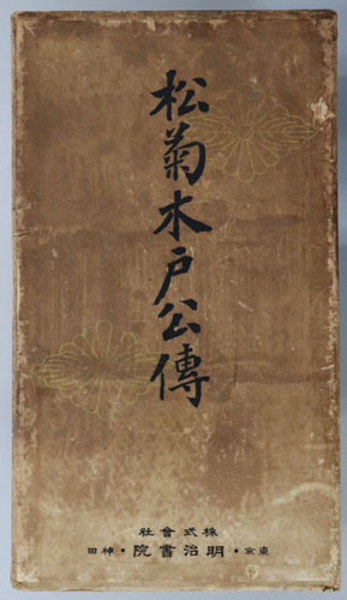 松菊木戸公傳
株式會社
東京・明治書院・神田